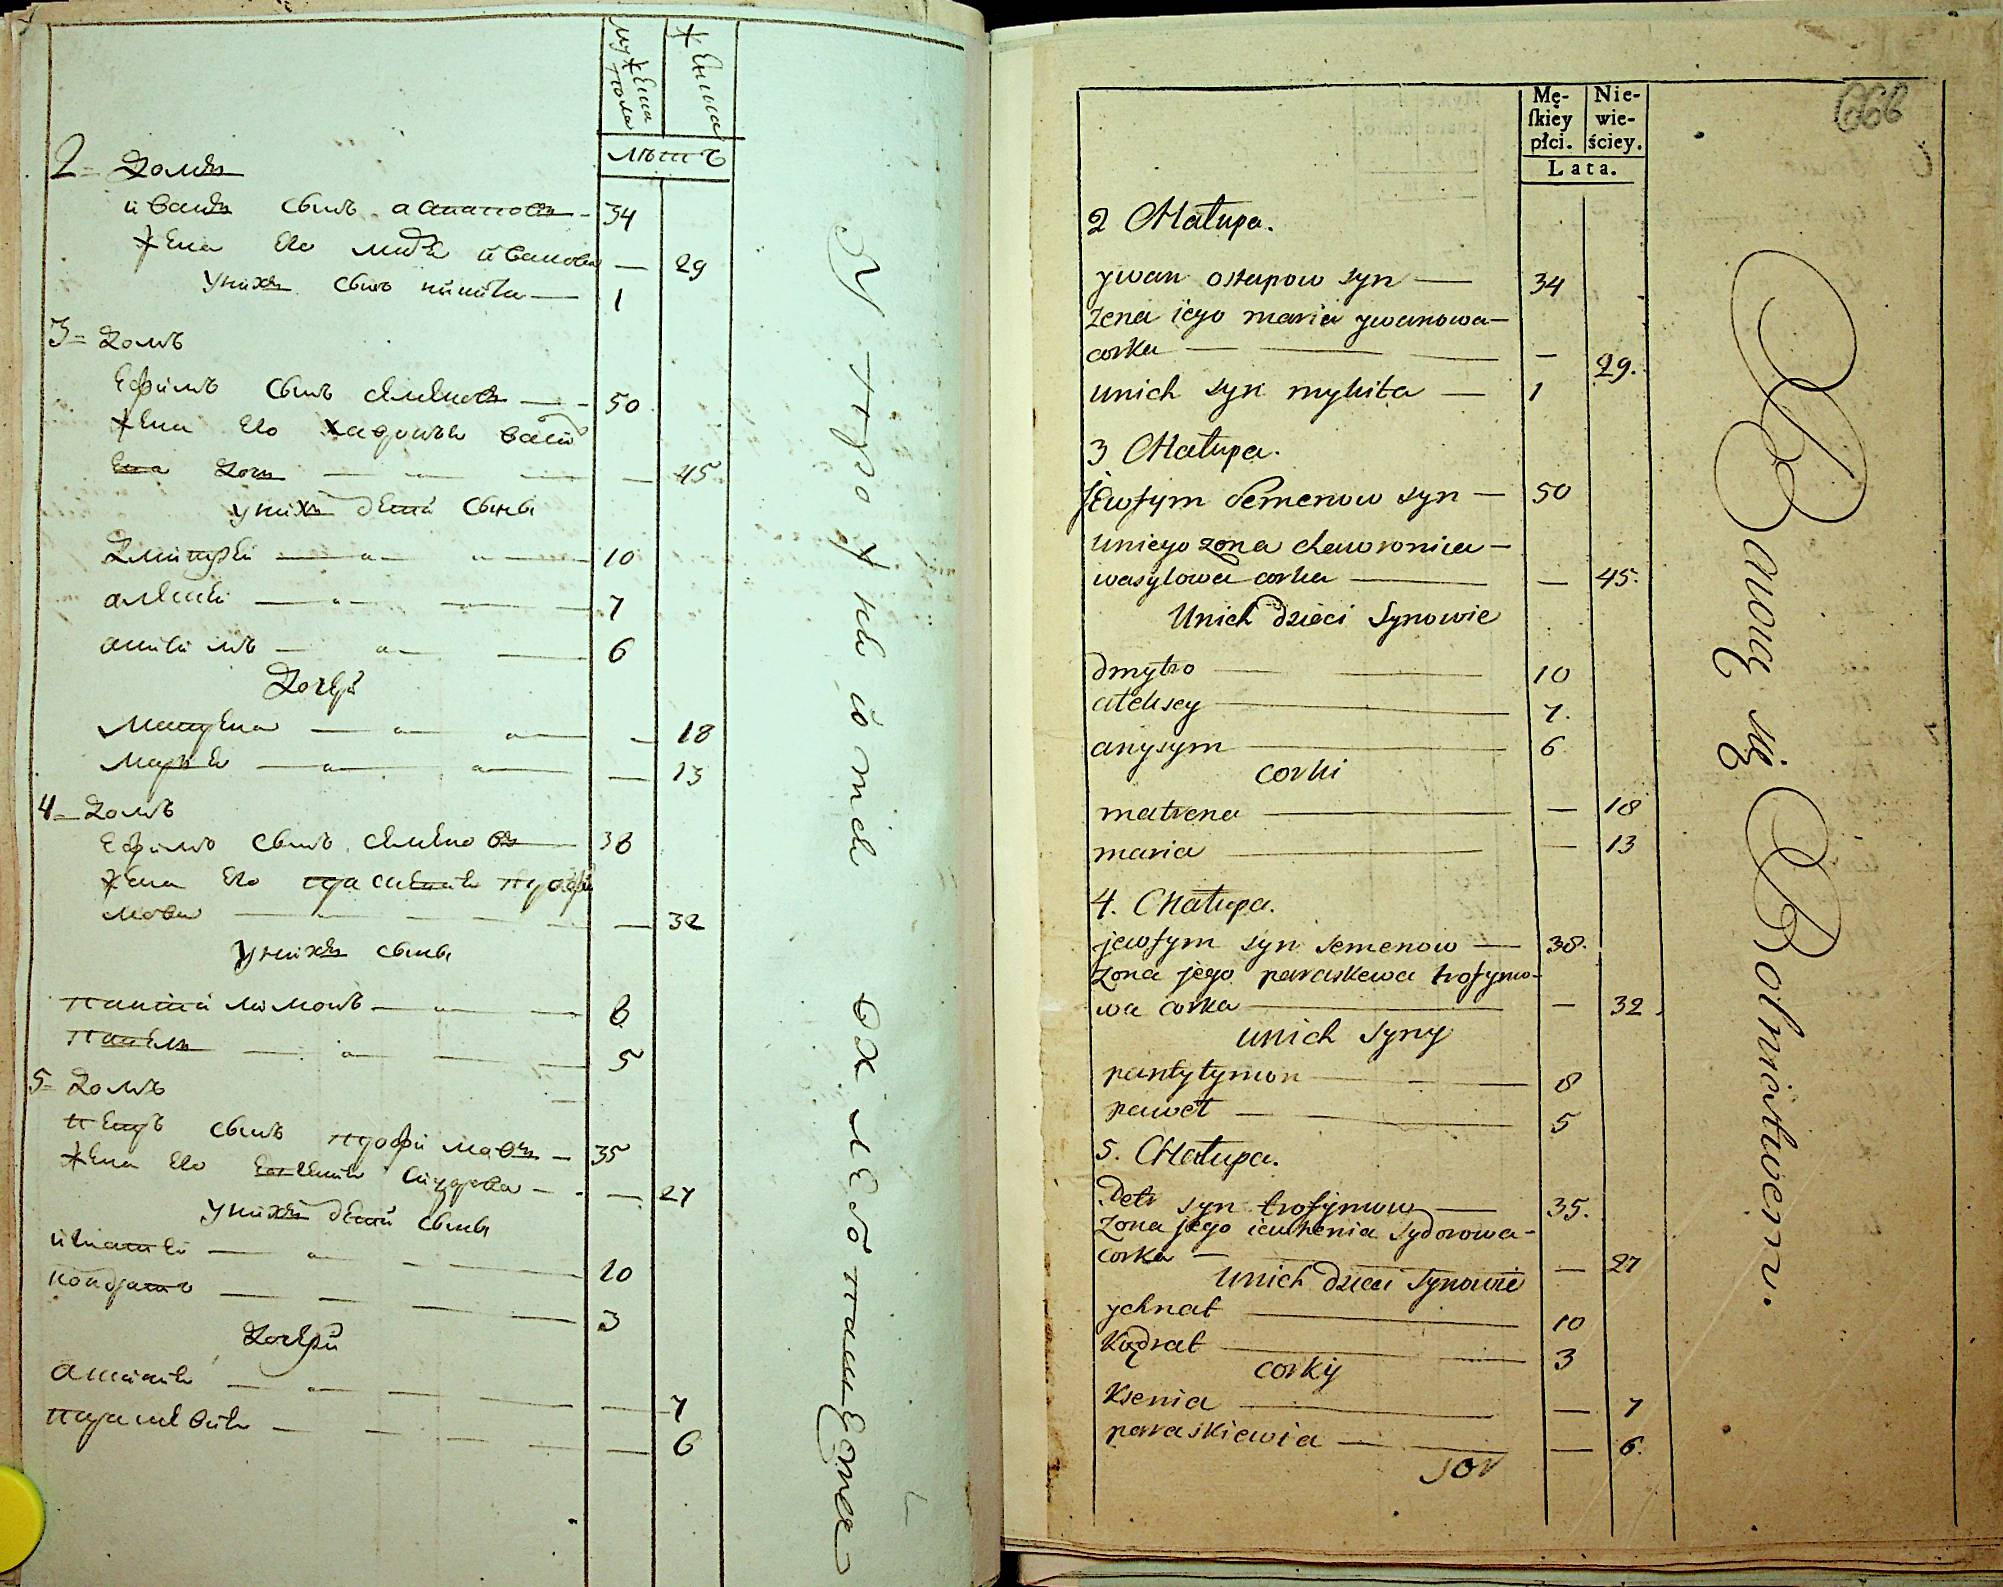 мужеска пола
женска
лѣтъ
2 = Домъ
иванъ сынъ астаповъ - 34
жена его марья иванова — 29
у нихъ сынъ никита — 1
3 = Домъ
Ефимъ сынъ семеновъ — 50
жена его хавронья васи
ева дочь — — 45
у нихъ дети сыны
Дмитрей — 10
алексей — 7
анисимъ — 6
Дочери
Матрена — 18
Марья — 13
4 = Домъ
Ефимъ сынъ семеновъ 38
жена его прасковья трофи
мова — 32
у нихъ сыны
пантилимонъ — 8
павелъ — 5
5 = Домъ
петръ сынъ трофимовъ — 35
жена его евгения сидорова — 27
у нихъ дети сыны
игнатей — 10
кондратъ — 3
Дочери
аксинья — 7
прасковья — 6
Упражняются
въ хлебопашестве
666
Mę-
ſkiey
płci.
Nie-
wie-
ściey.
Lata.
2 Chałupa.
ywan ostapow syn — 34
żena iego maria ywanowa —
corka — — 29.
unich syn mykita — 1
3 Chałupa.
Jewfym Semenow syn — 50
uniego żona chawronia —
wasylowa corka — — 45.
Unich dzieci Synowie
dmytro — 10
ałeksey — 7.
anysym — 6
corki
matrena — — 18
maria — — 13
4. Chałupa.
jewfym syn Semenow — 38.
żona jego paraskewa trofymo-
wa corka — — 32.
unich syny
pantyłymon — 8
paweł — 5
5. Chałupa.
Petr syn trofymow — 35.
żona jego iewhenia Sydorowa -
corka — — 27
Unich dzieci Synowie
yhnat — 10
Kądrat — 3
corky
Ksenia — — 7
paraskiewia — — 6.
Bawią się Rolnictwem.